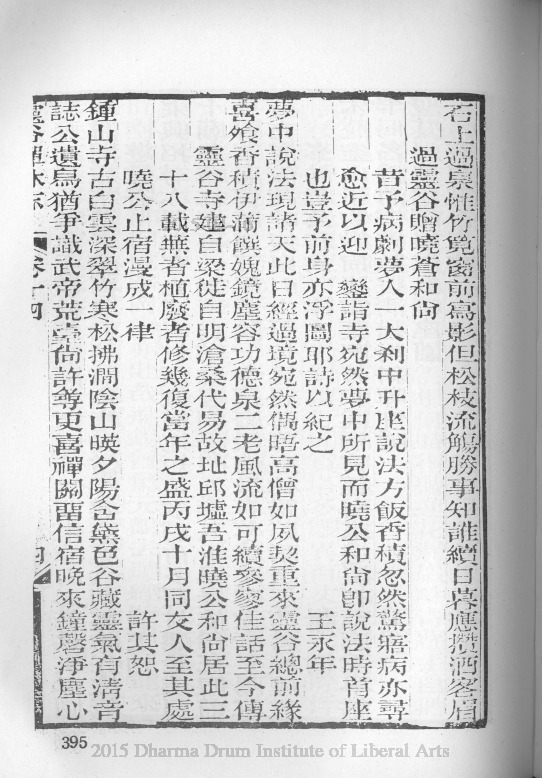 右上過泉惟竹筧窗前寫影但松枝流觴勝事知誰續日暮應攢洒客眉
過靈谷贈曉蒼和尚
昔予病劇夢入一大刹中升座說法方飯香積忽然驚寤病亦尋
愈近以迎 鑾詣寺宛然夢中所見而曉公和尚卽說法時首座
也豈予前身亦浮圖耶詩以紀之 王永年
夢中說法現諸天此日經過境宛然偶晤高僧如夙契重來靈谷總前緣
喜飧香積伊蒲饌媿鏡塵容功德泉二老風流如可續參寥佳話至今傳
靈谷寺建自梁徙自明滄桑代易故址邱墟吾淮曉公和尚居此三
十八載蕪者植廢者修幾復當年之盛丙戌十月同友人至其處
曉公止宿漫成一律 許其恕
鍾山寺古白雲深翠竹寒松拂澗陰山暎夕陽含黛色谷藏靈氣有清音
誌公遺鳥猶爭識武帝荒臺尚許尋更喜禪關畱信宿晚來鐘磬淨塵心
靈谷禪林志 卷十四 四
395
2015 Dharma Drum Institute of Liberal Arts